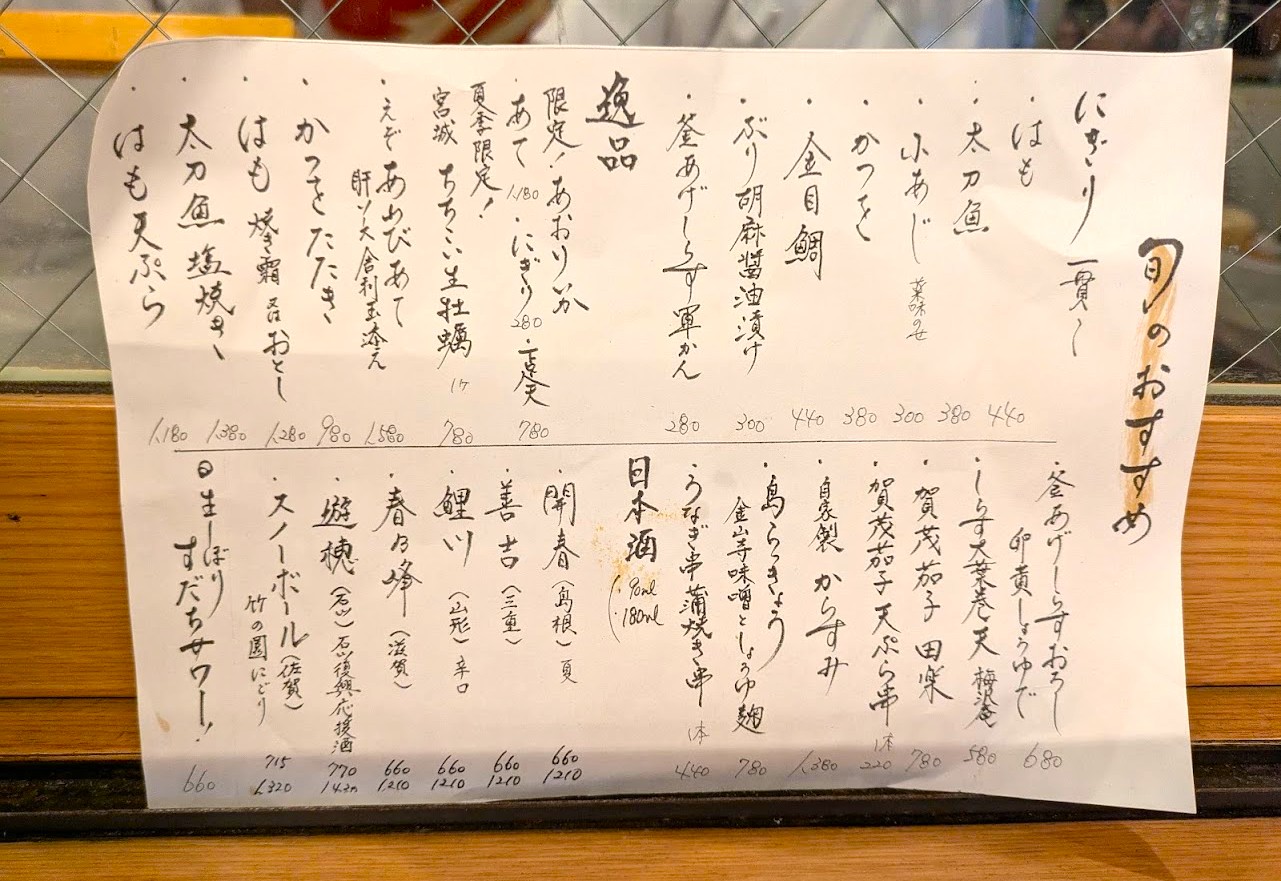 旬のおすすめ
にぎり 一貫〜
・はも 440
・太刀魚 380
・小あじ 薬味のせ 300
・かつを 380
・金目鯛 440
・ぶり胡麻醤油漬け 300
・釜あげしらす軍かん 280
逸品
限定！あおりいか
・あて 1,180 ・にぎり 280 ・天 780
夏季限定！
宮城 ちっこい生牡蠣 1ケ 780
・えぞあわびあて
肝ソース舎利玉添え 1,580
・かつをたたき 980
・はも 焼き霜 又は おとし 1,280
・太刀魚 塩焼き 1,380
・はも天ぷら 1,180
・釜あげしらすおろし
卵黄しょうゆで 680
・しらす大葉巻天 580
・賀茂茄子 田楽 780
・賀茂茄子 天ぷら串 1本 220
・自家製 からすみ 1,380
・島らっきょう
金山寺味噌としょうゆ麹 780
・うなぎ串 蒲焼き串 1本 440
日本酒
(・90ml
・180ml
・開春（島根）夏 660 1210
・善吉（三重） 660 1210
・鯉川（山形）辛口 660 1210
・春乃峰（滋賀） 660 1210
・遊穂（石川）石川復興応援酒 770 1430
・スノーボール（佐賀）
竹の園にごり 715 1,320
・生しぼり
すだちサワー！ 660